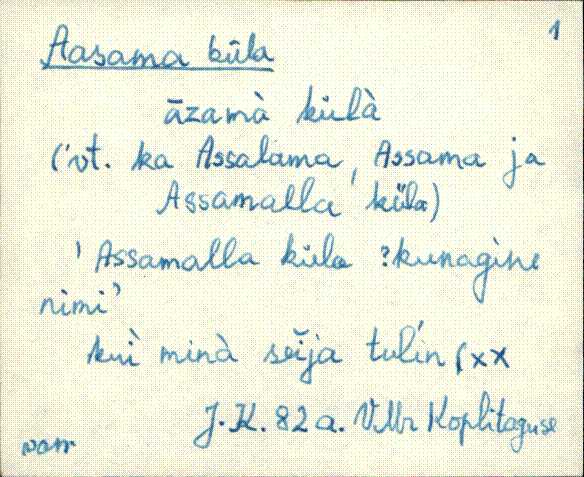 1
Aasama küla
āzamà külà
(vt. ka Assalama, Assama ja
Assamalla küla)
'Assamalla küla ?kunagine
nimi'
kuì minà seĭja tulín (xx
J. K. 82 a. VMr Koplitaguse